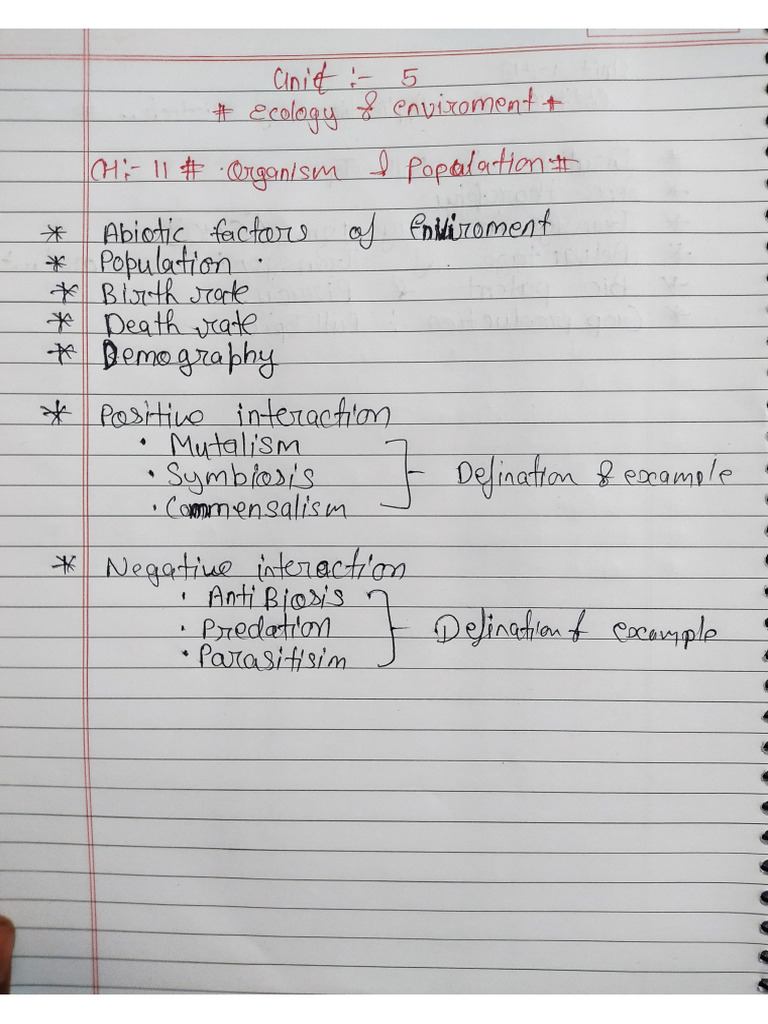 Unit :- 5
# Ecology & enviroment *
CH:- 11 # Organism & Population #
* Abiotic factors of Enviroment
* Population .
* Birth rate
* Death rate
* Demography
* Positive interaction
• Mutalism
• Symbiosis
• Commensalism
Defination & example
* Negative interaction
• Anti Biosis
• Predation
• Parasitisim
Defination & example